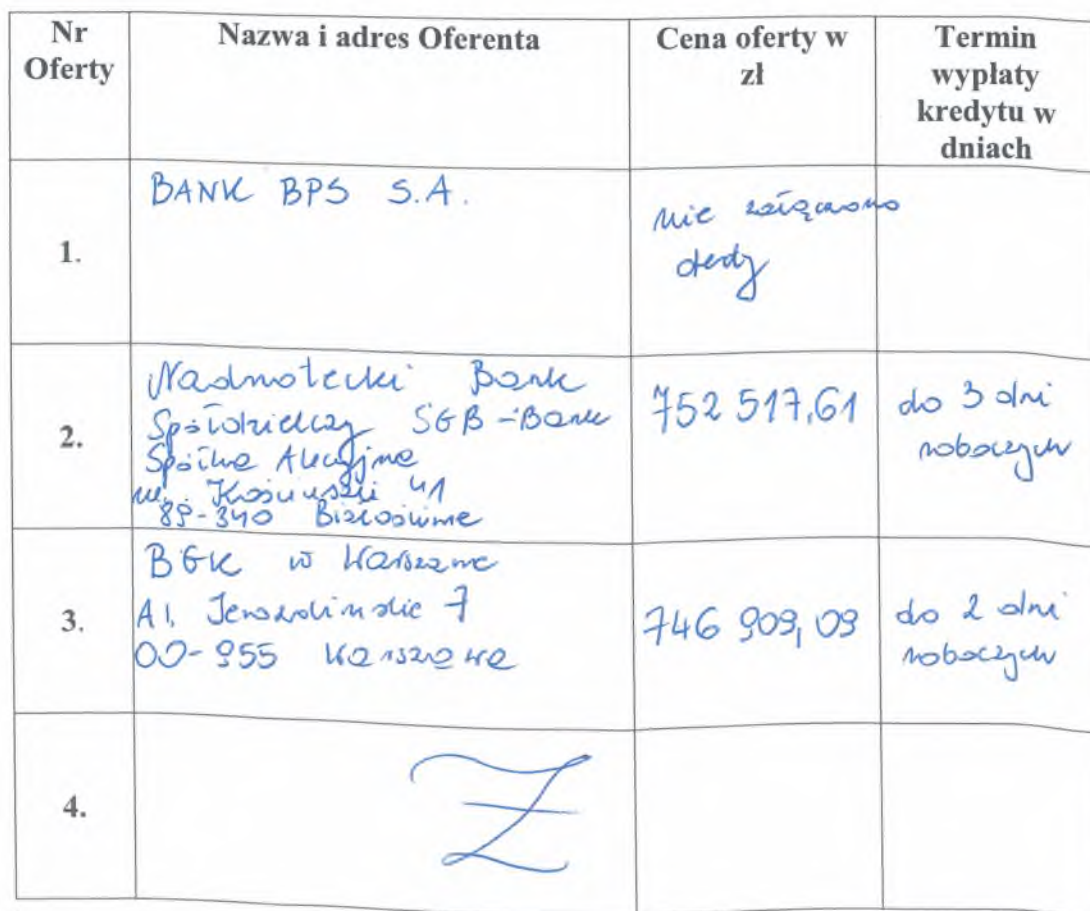 Nr Oferty
Nazwa i adres Oferenta
Cena oferty w zł
Termin wypłaty kredytu w dniach
1.
BANK BPS S.A.
nie załączono
oferty
2.
Nadnotecki Bank
Spółdzielczy SGB-Bank
Spółka Akcyjna
ul. Kościuszki 41
89-340 Białośliwie
752 517,61
do 3 dni
roboczych
3.
BGK w Warszawie
Al. Jerozolimskie 7
00-955 Warszawa
746 909,09
do 2 dni
roboczych
4.
Z